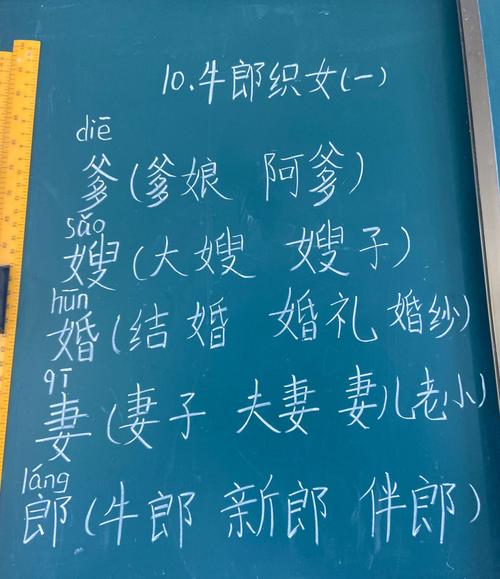 10.牛郎织女(一)
diē
爹(爹娘 阿爹)
sǎo
嫂(大嫂 嫂子)
hūn
婚(结婚 婚礼 婚纱)
qī
妻(妻子 夫妻 妻儿老小)
láng
郎(牛郎 新郎 伴郎)